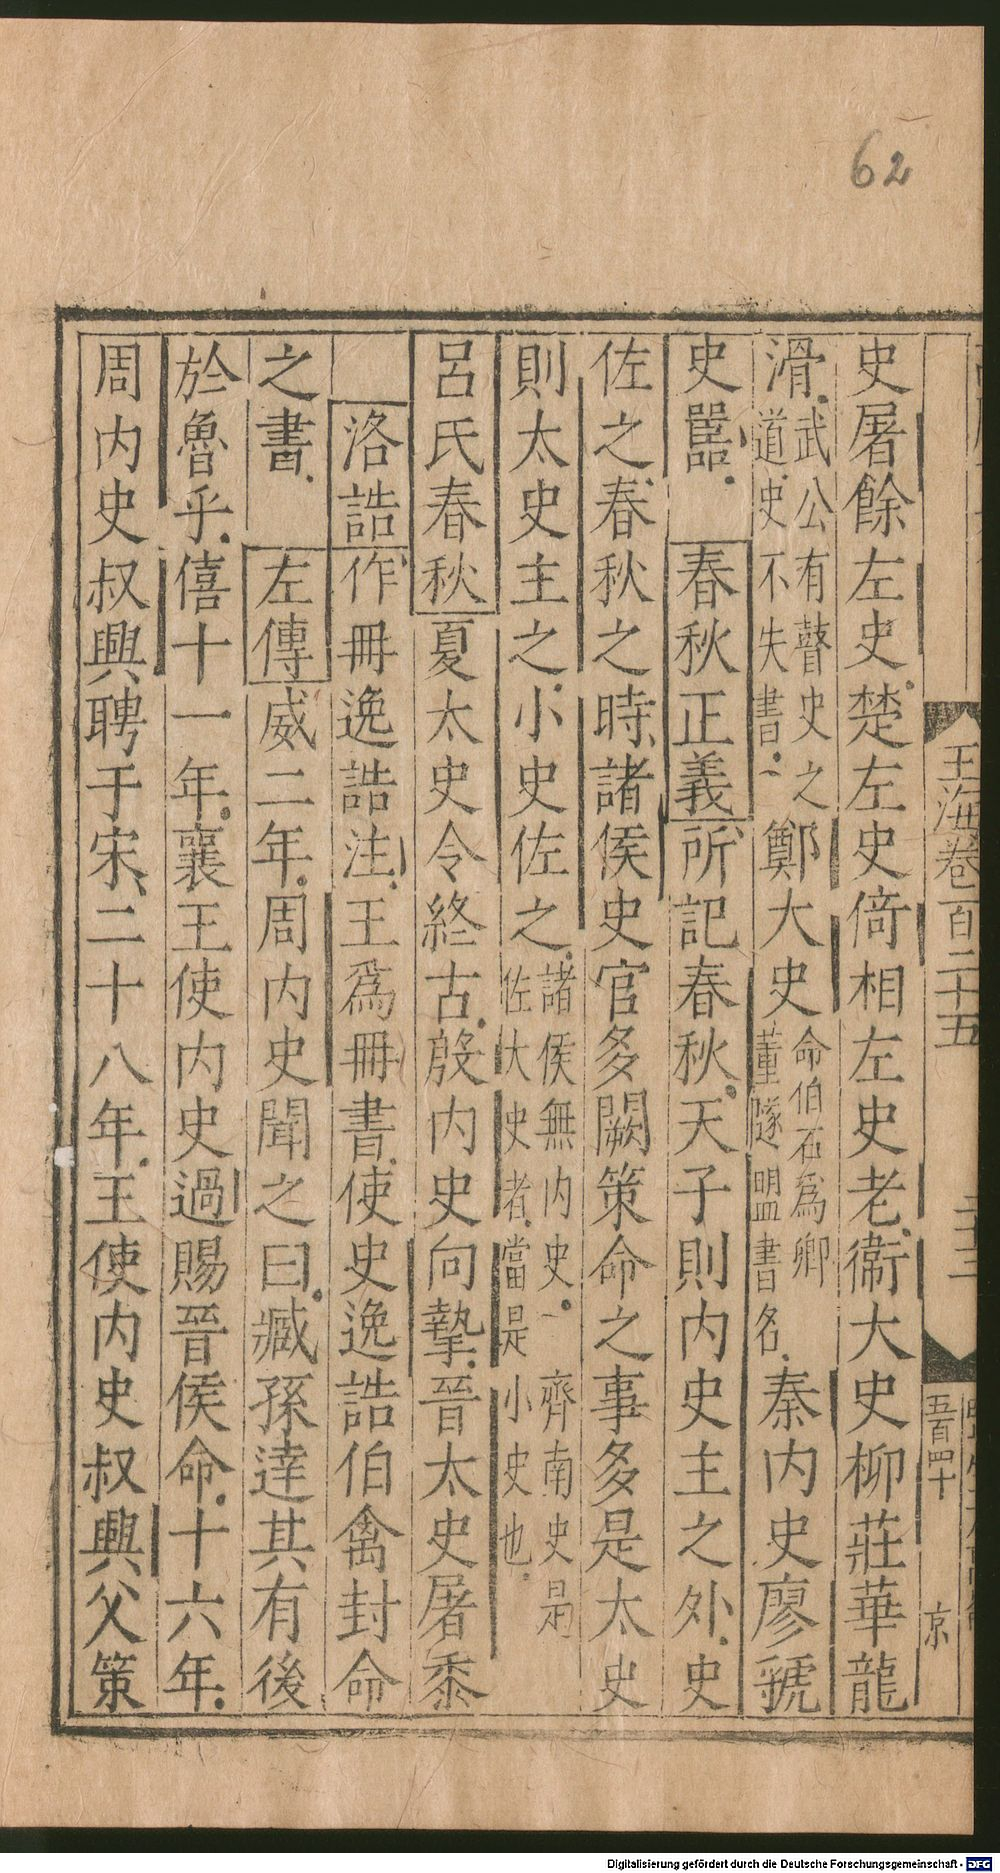 62
史屠餘左史楚左史倚相左史老衞大史柳莊華龍
滑武公有瞽史之道史不失書鄭大史命伯石爲卿董隧盟書名秦内史廖虢
史嚚春秋正義所記春秋天子則内史主之外史
佐之春秋之時諸侯史官多闕策命之事多是太史
則太史主之小史佐之諸侯無内史齊南史是佐大史者當是小史也
呂氏春秋夏太史令終古殷内史向摯晉太史屠黍
洛誥作冊逸誥注王爲冊書使史逸誥伯禽封命
之書左傳威二年周内史聞之曰臧孫達其有後
於魯乎僖十一年襄王使内史過賜晉侯命十六年
周内史叔興聘于宋二十八年王使内史叔興父策
玉海卷百二十五
二十三
五百四十
京
Digitalisierung gefördert durch die Deutsche Forschungsgemeinschaft - DFG